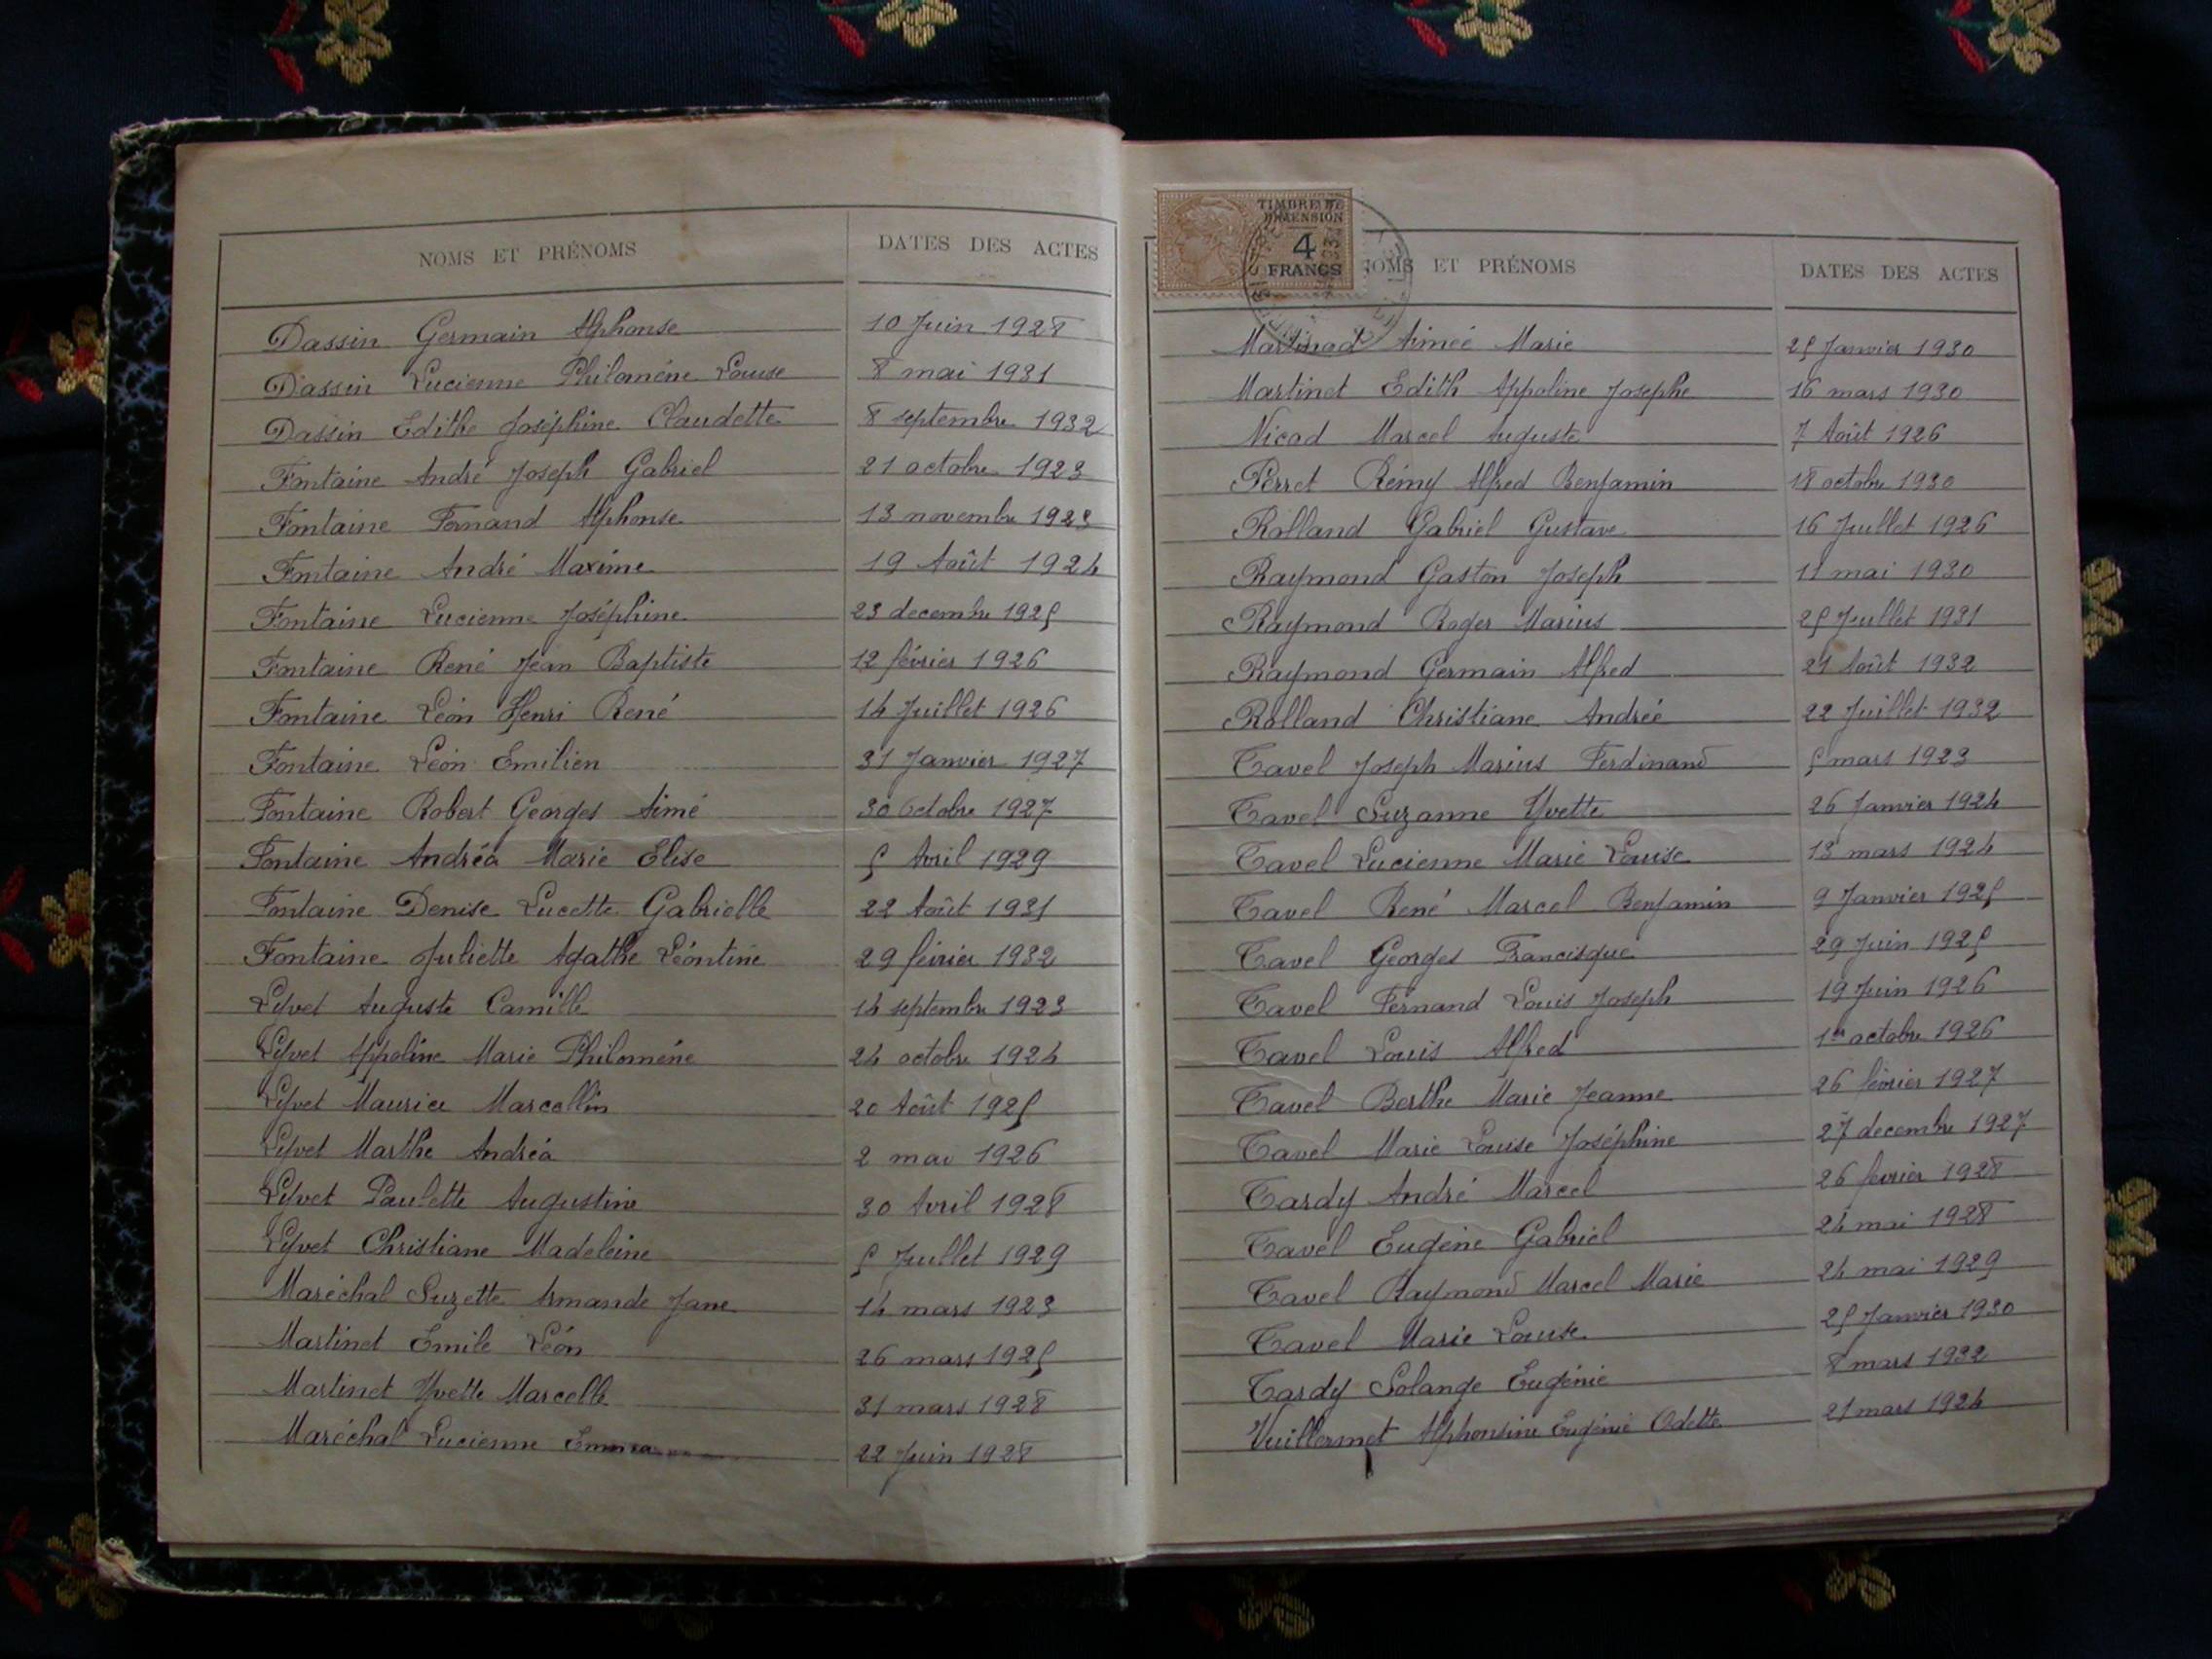 NOMS ET PRÉNOMS DATES DES ACTES
Dassin Germain Alphonse 10 Juin 1928
Dassin Lucienne Philomène Louise 8 mai 1931
Dassin Edithe Joséphine Claudette 8 septembre 1932
Fontaine André Joseph Gabriel 21 octobre 1923
Fontaine Fernand Alphonse 13 novembre 1923
Fontaine André Maxime 19 Août 1924
Fontaine Lucienne Joséphine 23 decembre 1925
Fontaine René Jean Baptiste 12 février 1926
Fontaine Léon Henri René 14 Juillet 1926
Fontaine Léon Emilien 31 Janvier 1927
Fontaine Robert Georges Aimé 30 Octobre 1927
Fontaine Andréa Marie Elise 5 Avril 1929
Fontaine Denise Lucette Gabrielle 22 Août 1931
Fontaine Juliette Agathe Léontine 29 février 1932
Lyvet Auguste Camille 14 septembre 1923
Lyvet Appoline Marie Philomène 24 octobre 1924
Lyvet Maurice Marcellin 20 Août 1925
Lyvet Marthe Andréa 2 mai 1926
Lyvet Paulette Augustine 30 Avril 1928
Lyvet Christiane Madeleine 5 Juillet 1929
Maréchal Suzette Armande Jane 14 mars 1923
Martinet Emile Léon 26 mars 1925
Martinet Yvette Marcelle 31 mars 1928
Maréchal Lucienne Emma 22 Juin 1928
TIMBRE DE
DIMENSION
4
FRANCS
NOMS ET PRÉNOMS DATES DES ACTES
Aimée Marie 25 Janvier 1930
Martinet Edith Appoline Josephe 16 mars 1930
Nicod Marcel Auguste 7 Août 1926
Perret Rémy Alfred Benjamin 18 octobre 1930
Rolland Gabriel Gustave 16 Juillet 1926
Raymond Gaston Joseph 11 mai 1930
Raymond Roger Marius 25 Juillet 1931
Raymond Germain Alfred 21 Août 1932
Rolland Christiane Andrée 22 Juillet 1932
Tavel Joseph Marius Ferdinand 5 mars 1923
Tavel Suzanne Yvette 26 Janvier 1924
Tavel Lucienne Marie Louise 13 mars 1924
Tavel René Marcel Benjamin 9 Janvier 1925
Tavel Georges Francisque 29 Juin 1925
Tavel Fernand Louis Joseph 19 Juin 1926
Tavel Louis Alfred 1er octobre 1926
Tavel Berthe Marie Jeanne 26 février 1927
Tavel Marie Louise Joséphine 27 decembre 1927
Tardy André Marcel 26 février 1928
Tavel Eugène Gabriel 24 mai 1928
Tavel Raymond Marcel Marie 24 mai 1929
Tavel Marie Louise 25 Janvier 1930
Tardy Solange Eugénie 8 mars 1932
Vuillermet Alphonsine Eugénie Odette 21 mars 1924